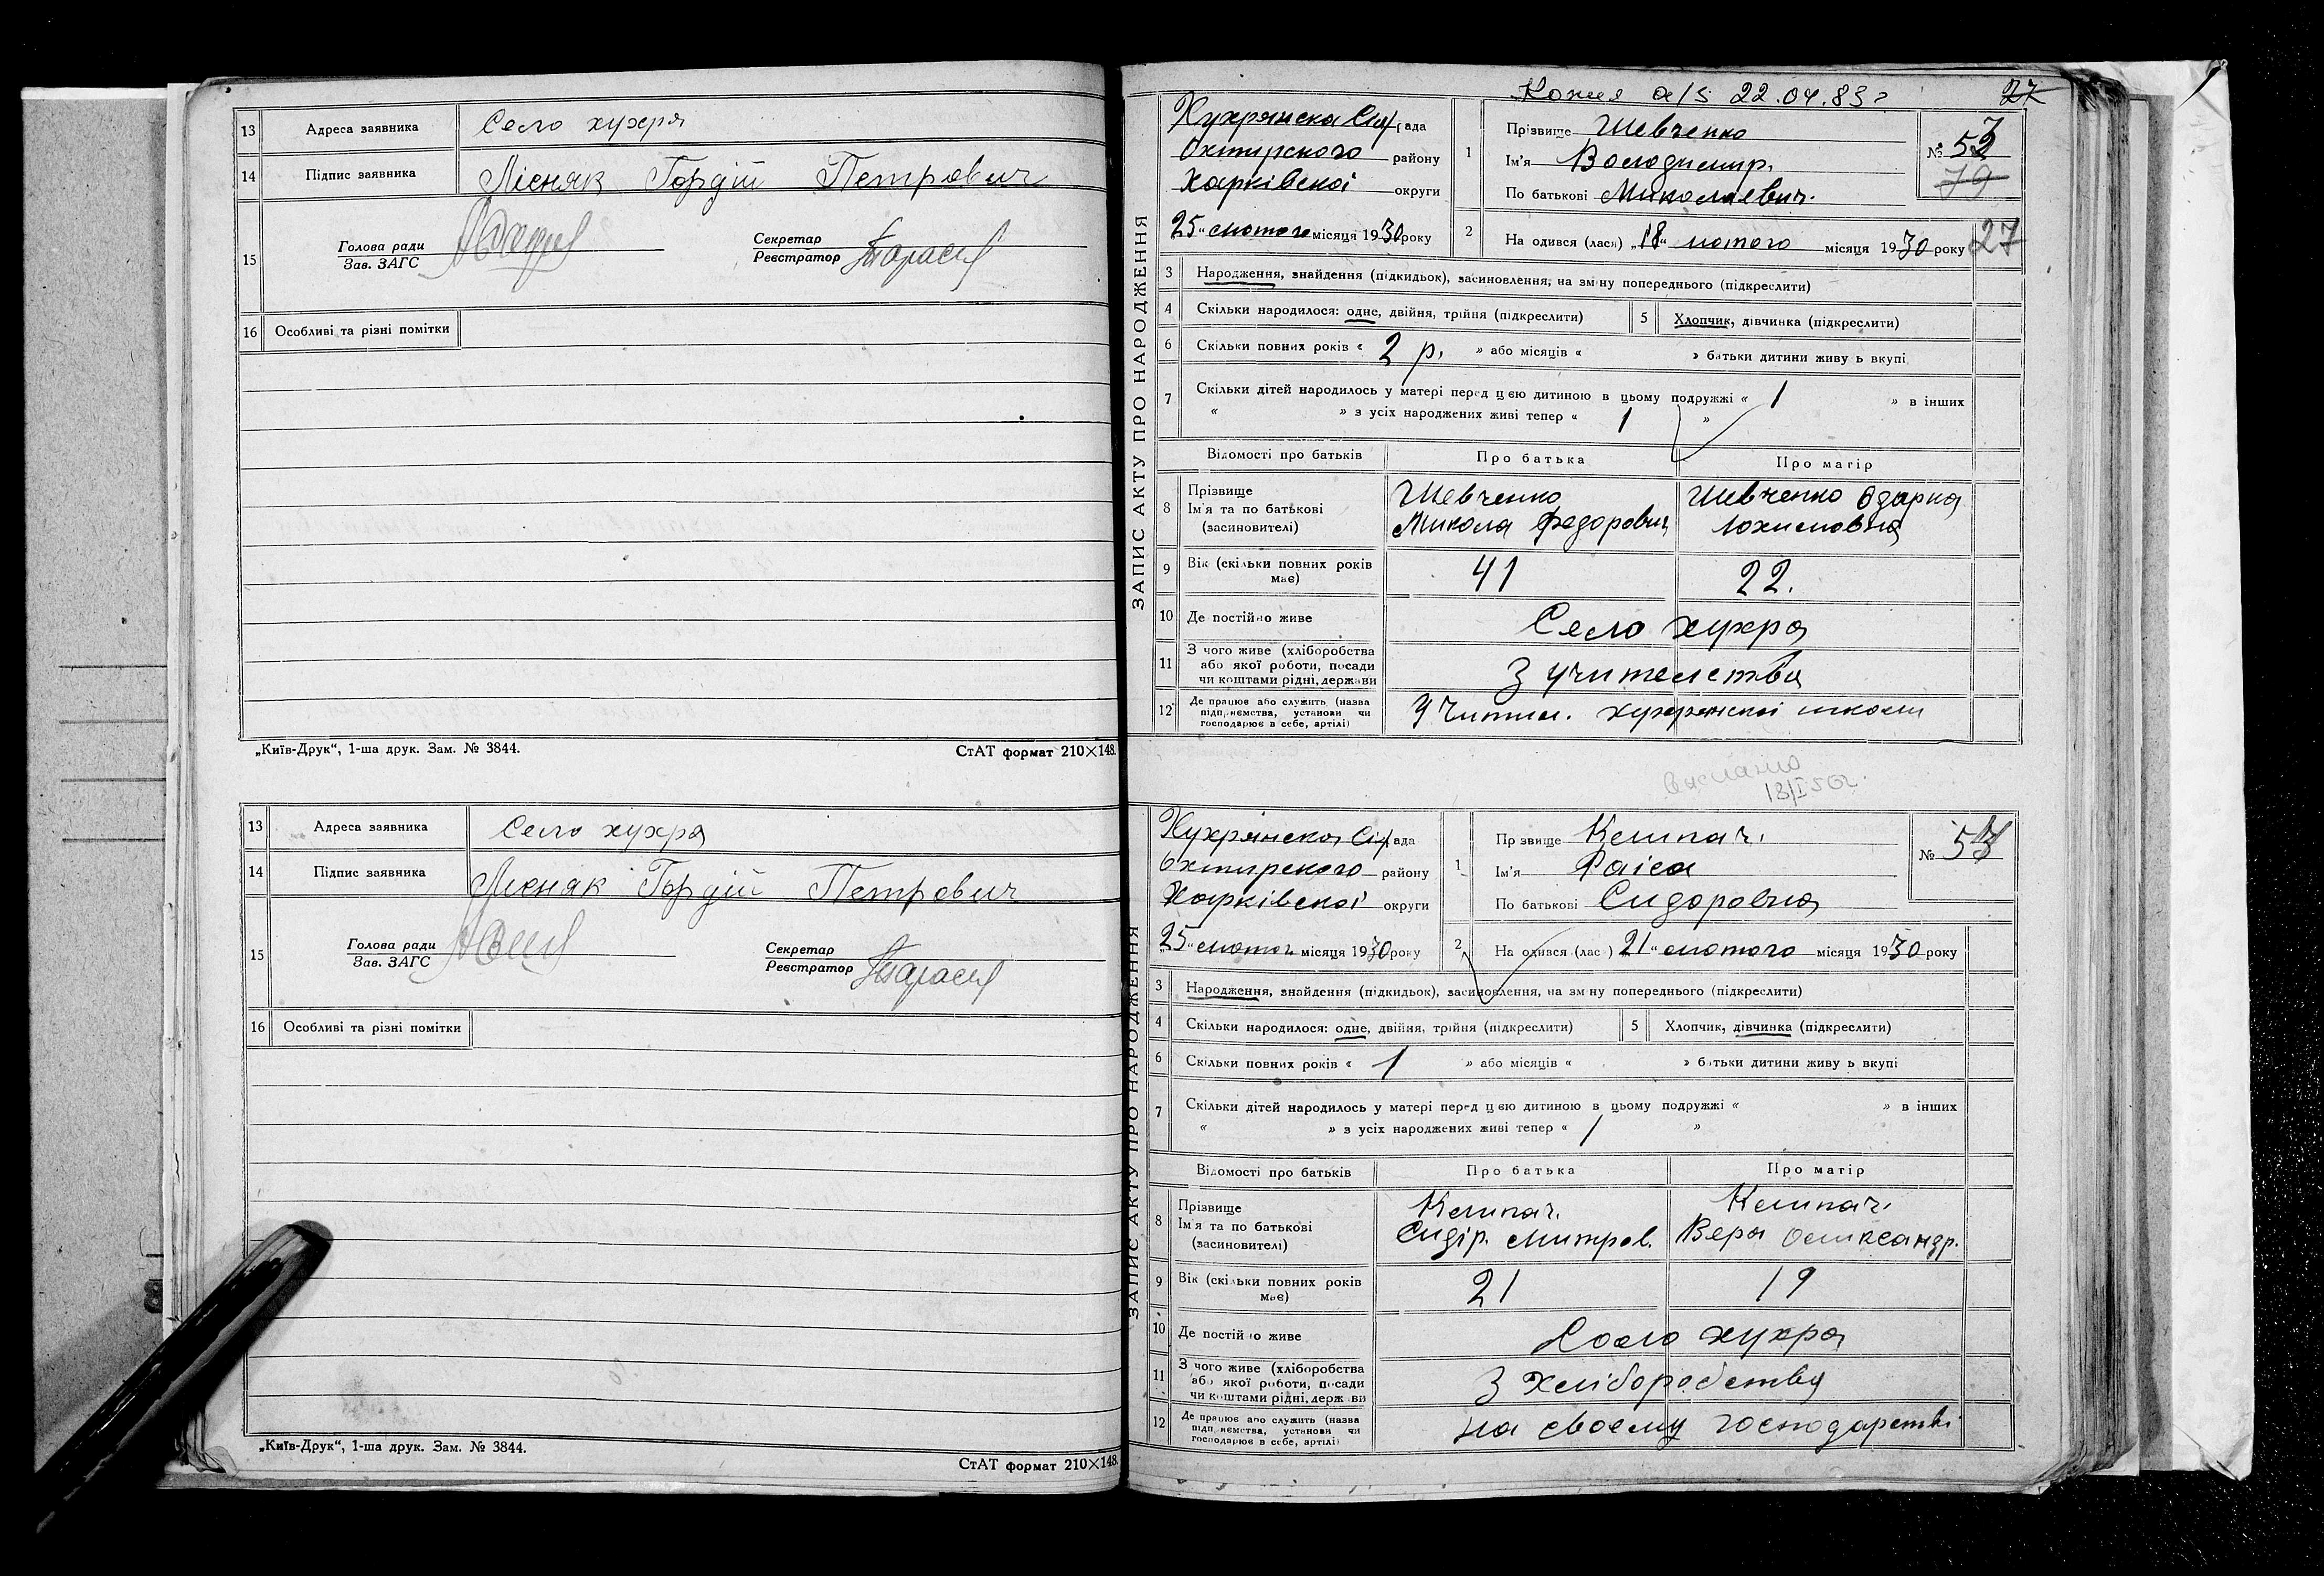 13 Адреса заявника Село хухря
14 Підпис заявника Лісняк Гордій Петрович
15 Голова ради
Зав. ЗАГС
Секретар
Реєстратор
16 Особливі та різні помітки
„Київ-Друк“, 1-ша друк. Зам. № 3844. СтАТ формат 210×148.
13 Адреса заявника Село хухря
14 Підпис заявника Лісняк Гордій Петрович
15 Голова ради
Зав. ЗАГС
Секретар
Реєстратор
16 Особливі та різні помітки
„Київ-Друк“, 1-ша друк. Зам. № 3844.
СтАТ формат 210×148.
Копия а/s 22.04.83г 27
ЗАПИС АКТУ ПРО НАРОДЖЕННЯ
Хухрянска Сільрада
Охтирского району
Харківскої округи
25 лютого місяця 1930 року
1 Прізвище Шевченко
Ім'я Володимир.
По батькові Миколаевич.
№ 53
79
2 На одився (лась) „18“ лютого місяця 1930 року
27
3 Народження, знайдення (підкидьок), засиновлення, на зміну попереднього (підкреслити)
4 Скільки народилося: одне, двійня, трійня (підкреслити) 5 Хлопчик, дівчинка (підкреслити)
6 Скільки повних років « 2 р. » або місяців « » батьки дитини живу ь вкупі
7 Скільки дітей народилось у матері перед цією дитиною в цьому подружжі « 1 » в інших
« » з усіх народжених живі тепер « 1 »
Відомості про батьків Про батька Про матір
8 Прізвище
Ім'я та по батькові
(засиновителі)
Шевченко
Микола Федорович
Шевченко Одарка
Юхимовна
9 Вік (скільки повних років має) 41 22.
10 Де постійно живе Село хухря
11 З чого живе (хліборобства
або якої роботи, посади
чи коштами рідні, держави
З учителства
12 Де працює або служить (назва
підприємства, установи чи
господарює в себе, артілі)
Учител. хухрянскої школи
Выслано
ЗАПИС АКТУ ПРО НАРОДЖЕННЯ
Хухрянска Сільрада
Охтирского району
Харківскої округи
„25“ лютого місяця 1930 року
1 Пр звище Келипач.
Ім'я Раіса
По батькові Сидоровна
№ 57
2 На одився (лас ) 21“ лютого місяця 1930 року
3 Народження, знайдення (підкидьок), засиновлення, на зміну попереднього (підкреслити)
4 Скільки народилося: одне, двійня, трійня (підкреслити) 5 Хлопчик, дівчинка (підкреслити)
6 Скільки повних років « 1 » або місяців « » батьки дитини живу ь вкупі
7 Скільки дітей народилось у матері перед цією дитиною в цьому подружжі « » в інших
« » з усіх народжених живі тепер « 1 »
Відомості про батьків Про батька Про матір
8 Прізвище
Ім'я та по батькові
(засиновителі)
Келипач.
Сидір. Митров.
Келипач.
Вера Олександр.
9 Вік (скільки повних років має) 21 19
10 Де постій о живе Село хухря
11 З чого живе (хліборобства
або якої роботи, посади
чи коштами рідні, держ ви
З хліборобства
12 Де працює або служить (назва
підприємства, установи чи
господарює в себе, артілі)
на своему господарстві